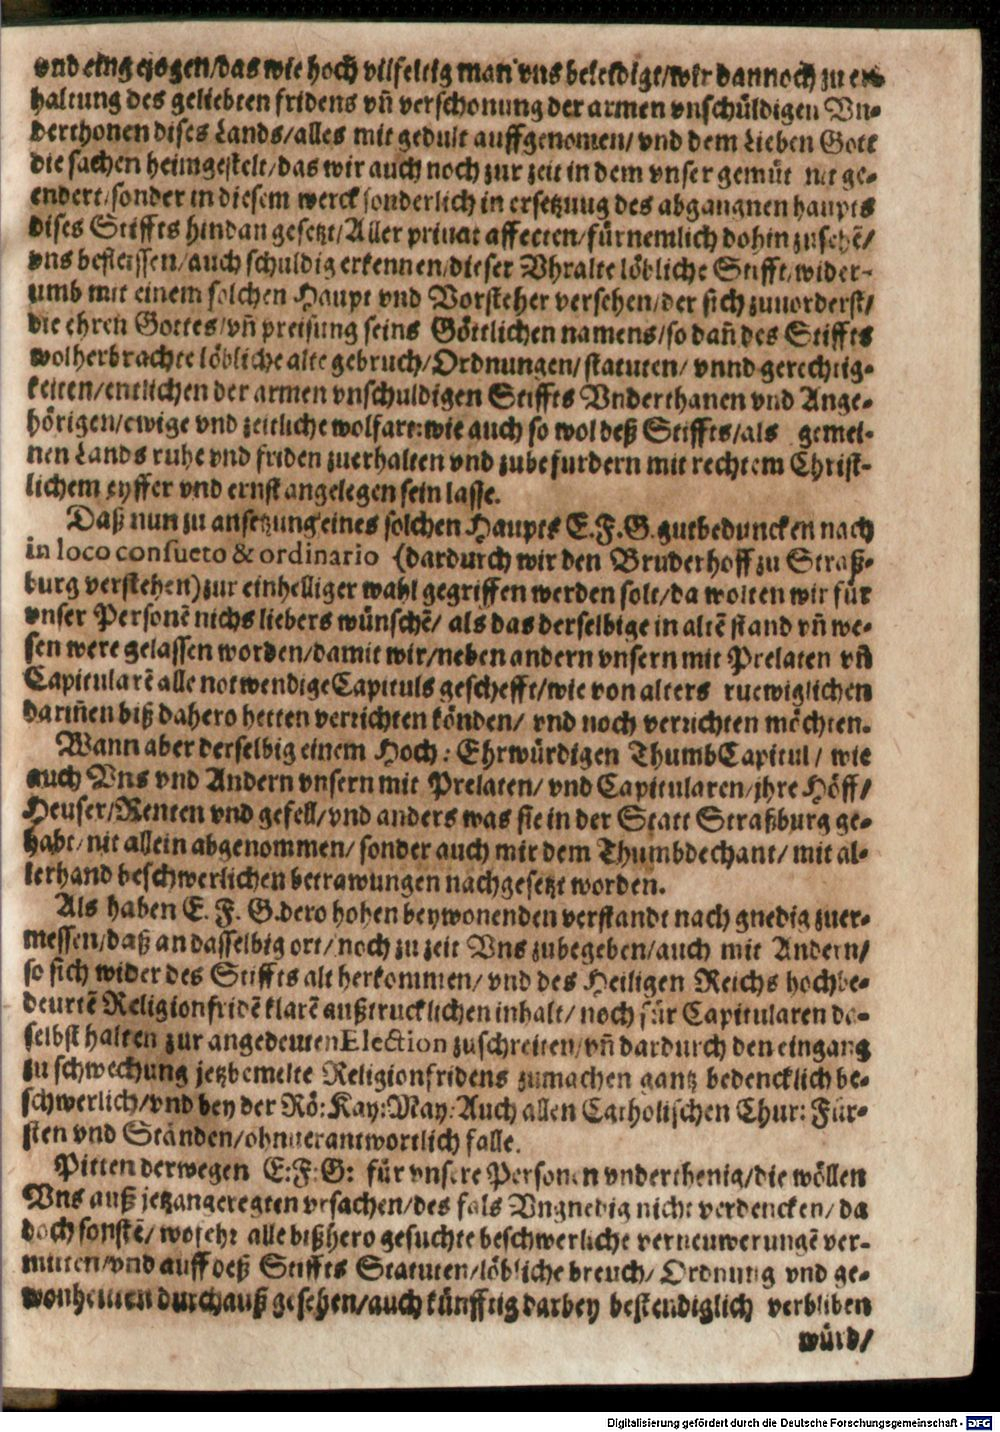 vnd eingezogen/das wie hoch vilfeltig man vns beleidigt/wir dannoch zu er-
haltung des geliebten fridens vñ verschonung der armen vnschüldigen Vn-
derthonen dises Lands/alles mit gedult auffgenomen/ vnd dem Lieben Gott
die sachen heimgestelt/das wir auch noch zur zeit in dem vnser gemüt nit ge-
endert/sonder in diesem werck sonderlich in ersetzung des abgangnen haupts
dises Stiffts hindan gesetzt/Aller priuat affecten/fürnemlich dohin zusehẽ/
vns befleissen/auch schuldig erkennen/dieser Vhralte löbliche Stifft/wider-
umb mit einem solchen Haupt vnd Vorsteher versehen/der sich zuuorderst/
die ehren Gottes/vñ preisung seins Göttlichen namens/so dañ des Stiffts
wolherbrachte löbliche alte gebruch/Ordnungen/statuten/ vnnd gerechtig-
keiten/entlichen der armen vnschuldigen Stiffts Vnderthanen vnd Ange-
hörigen/ewige vnd zeitliche wolfart:wie auch so wol deß Stiffts/als gemei-
nen Lands ruhe vnd friden zuerhalten vnd zubefurdern mit rechtem Christ-
lichem eyffer vnd ernst angelegen sein lasse.
Daß nun zu ansetzung eines solchen Haupts E.F.G. gutbeduncken nach
in loco consueto & ordinario (dardurch wir den Bruderhoff zu Straß-
burg verstehen) zur einhelliger wahl gegriffen werden solt/da wolten wir für
vnser Personẽ nichs liebers wünschẽ/ als das derselbige in altẽ stand vñ we-
sen were gelassen worden/damit wir/neben andern vnsern mit Prelaten vñ
Capitularẽ alle notwendige Capituls geschefft/wie von alters ruewiglichen
dariñen biß dahero hetten verrichten könden/ vnd noch verrichten möchten.
Wann aber derselbig einem Hoch: Ehrwürdigen ThumbCapitul/ wie
auch Vns vnd Andern vnsern mit Prelaten/ vnd Capitularen/jhre Höff/
Heuser/Renten vnd gefell/vnd anders was sie in der Statt Straßburg ge-
habt/nit allein abgenommen/ sonder auch mit dem Thumbdechant/ mit al-
lerhand beschwerlichen betrawungen nachgesetzt worden.
Als haben E. F. G. dero hohen beywonenden verstandt nach gnedig zuer-
messen/daß an dasselbig ort/noch zu zeit Vns zubegeben/auch mit Andern/
so sich wider des Stiffts alt herkommen/ vnd des Heiligen Reichs hochbe-
deurtẽ Religionfridẽ klarẽ außtrucklichen inhalt/ noch für Capitularen da-
selbst halten zur angedeuten Election zuschreiten/vñ dardurch den eingang
zu schwechung jetzbemelte Religionfridens zumachen gantz bedencklich be-
schwerlich/vnd bey der Rö:Kay:May:Auch allen Catholischen Chur: Für-
sten vnd Ständen/ohnuerantwortlich falle.
Pitten derwegen E:F:G: für vnsere Personen vnderthenig/die wöllen
Vns auß jetzangeregten vrsachen/des fals Vngnedig nicht verdencken/ da
doch sonstẽ/ wofehr alle bißhero gesuchte beschwerliche verneuwerungẽ ver-
mitten/vnd auff deß Stiffts Statuten/löbliche breuch/ Ordnung vnd ge-
wonheitten durchauß gesehen/auch künfftig darbey bestendiglich verbliben
würd/
Digitalisierung gefördert durch die Deutsche Forschungsgemeinschaft - DFG